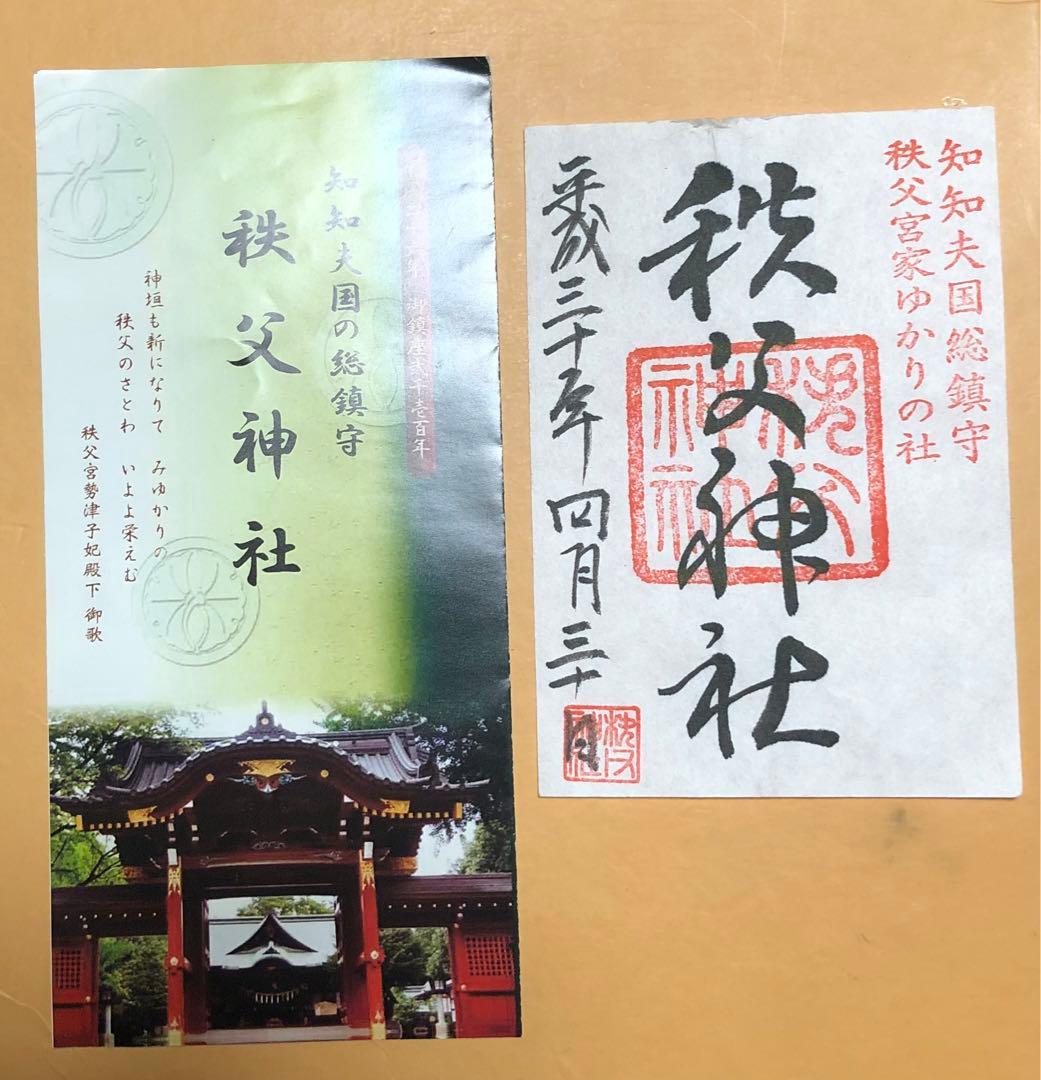 御鎮座弐千壱百年
知知夫国の総鎮守
秩父神社
神垣も新になりて みゆかりの
秩父のさとわ いよよ栄えむ
秩父宮勢津子妃殿下 御歌
知知夫国総鎮守
秩父宮家ゆかりの社
秩父神社
秩父神社
平成三十年四月三十日